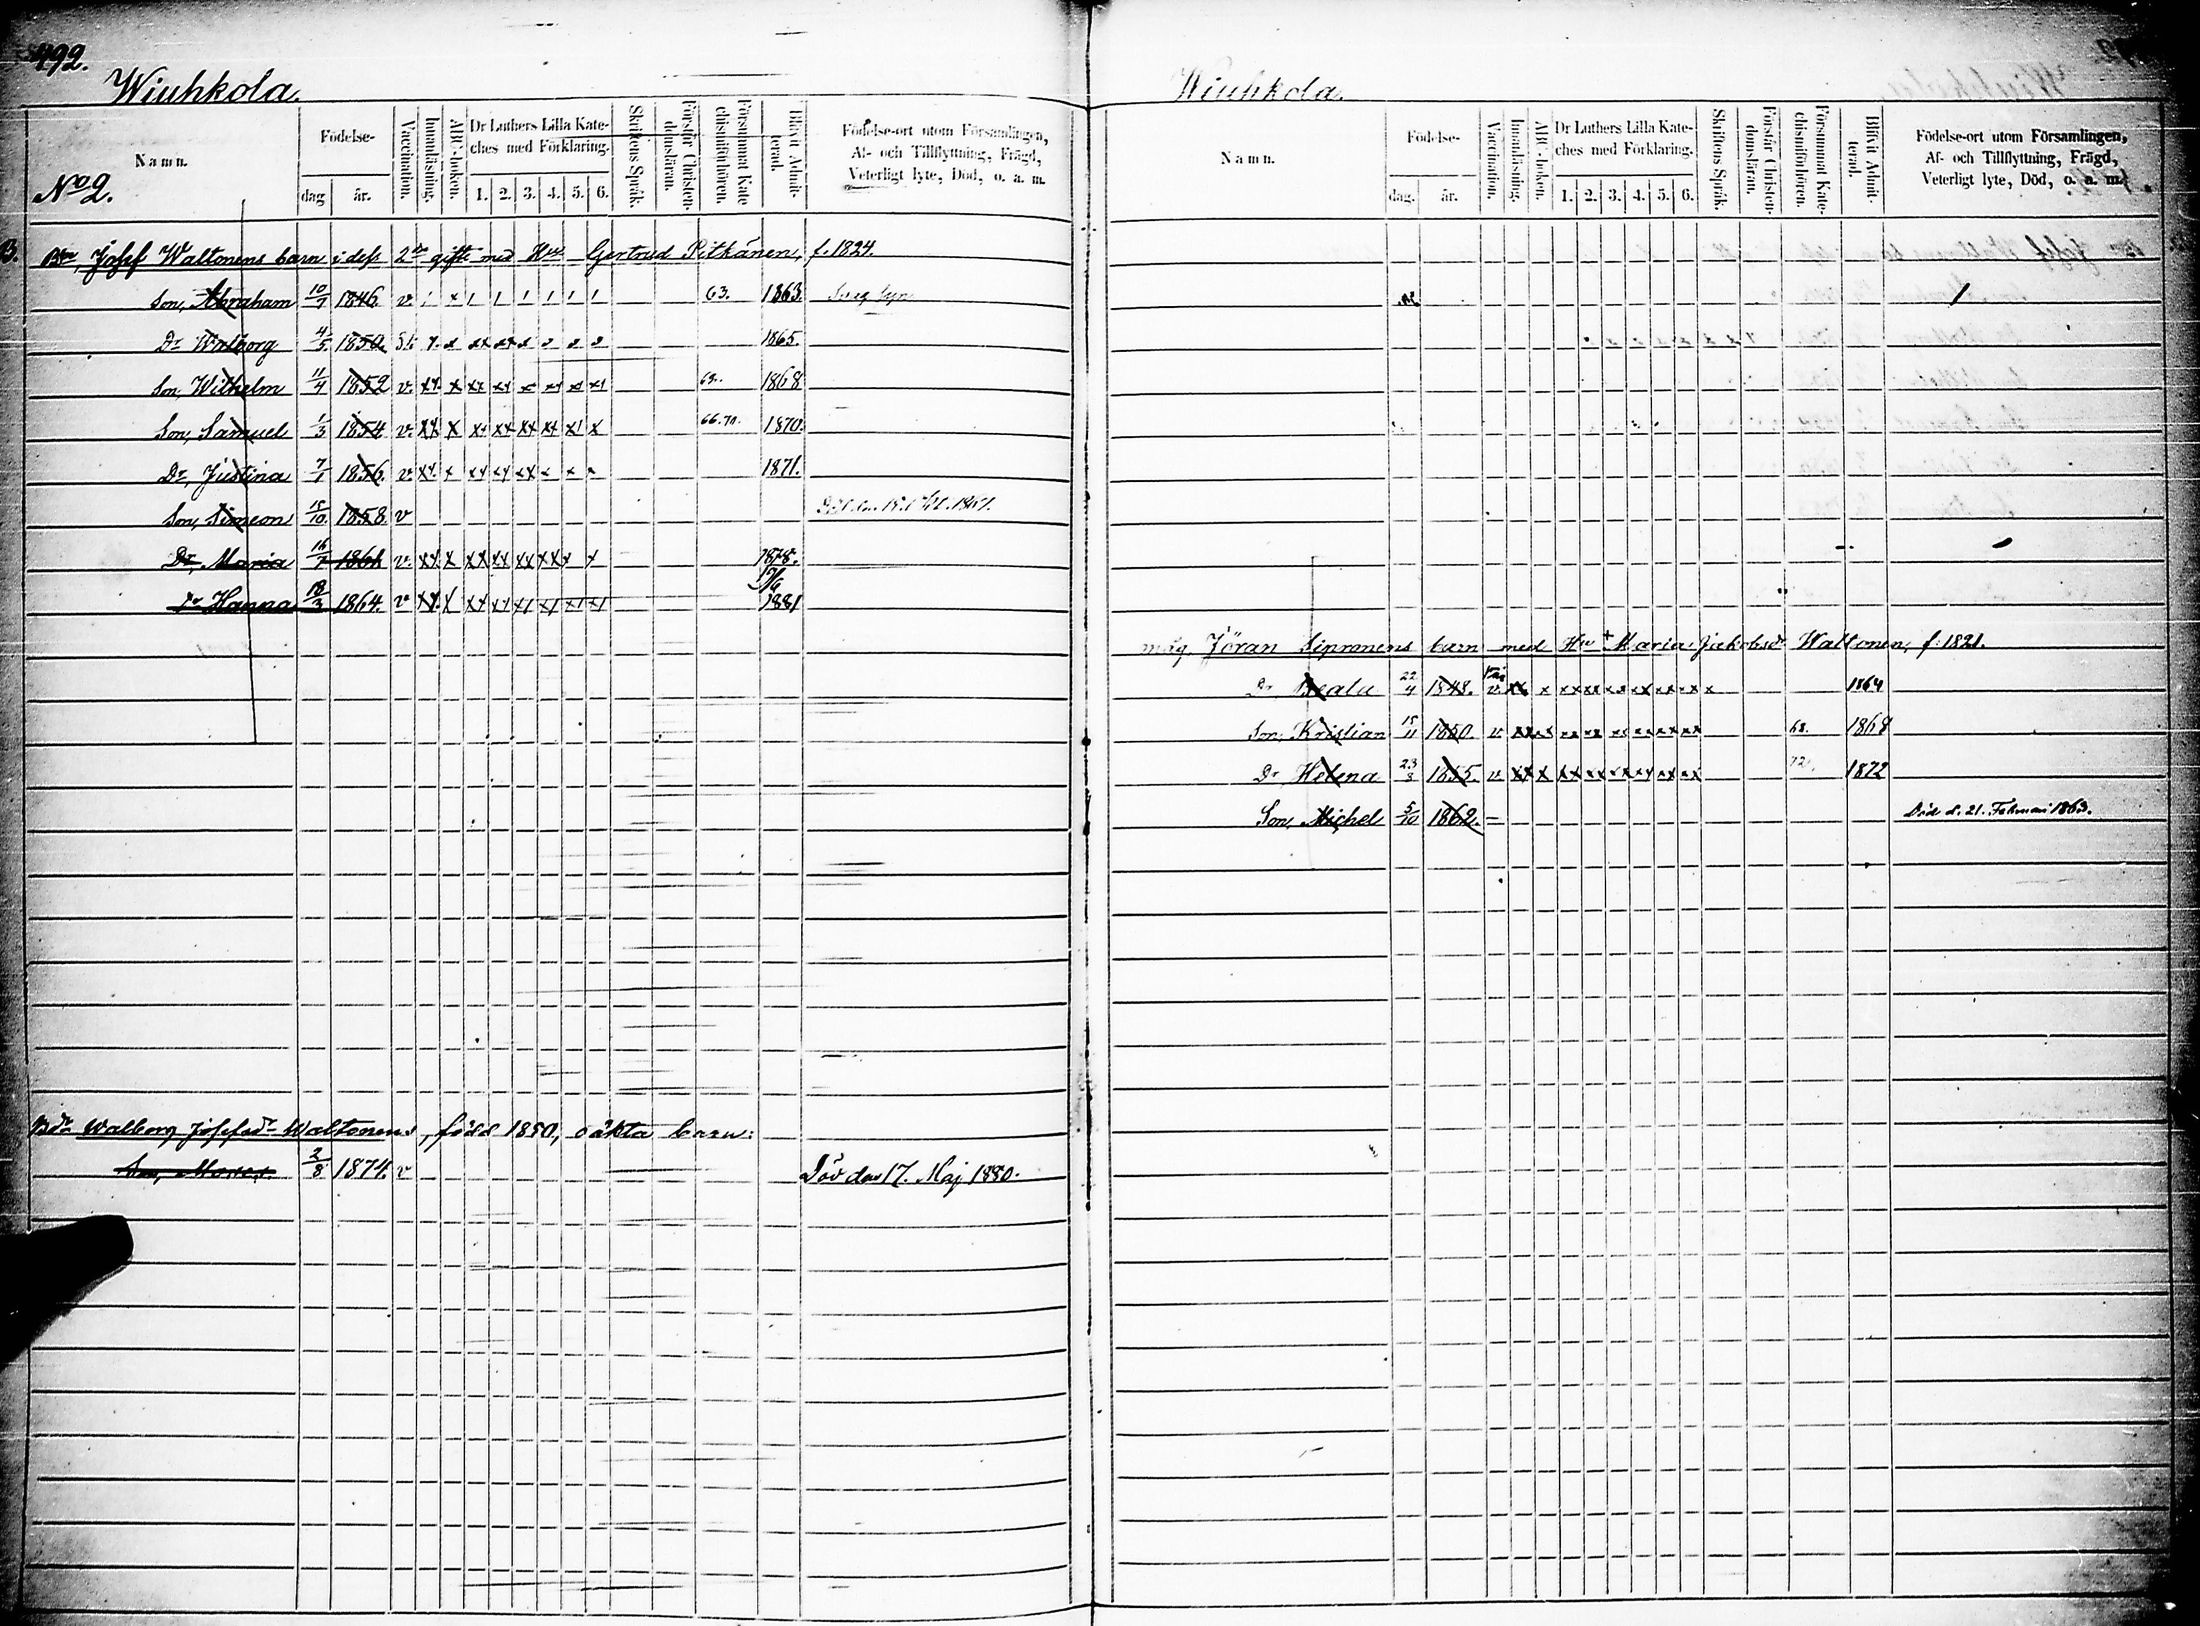 492.
Wiuhkola.
Namn.
Födelse-
dag
år.
Vaccination.
Innanläsning.
ABC-boken.
Dr Luthers Lilla Kate-
ches med Förklaring.
1. 2. 3. 4. 5. 6.
Skriftens Språk.
Förstår Christen-
domsläran.
Försummat Kate-
chismiförhören.
Blifvit Admit-
terad.
Födelse-ort utom Församlingen,
Af- och Tillflyttning, Frägd,
Veterligt lyte, Död, o. a. m.
No 2.
B. Bdn, Josef Waltonens barn i dess 2dra gifte med Hu Gertrud Pitkänen, f. 1824.
Son, Abraham 10/7 1846. v. 63. 1863.
Dr Walborg 4/5 1850. 1865.
Son, Wilhelm 11/4 1852 v. 63. 1868
Son, Samuel 1/3 1854 v. 66.70. 1870.
Dr, Justina 7/1 1856. v. 1871.
Son, Simeon 15/10 1858. v
Dr, Maria 16/7 1861 v. 1878.
Dr Hanna 18/3 1864. v 19/6 1881
Bdr Walborg Josefsdr Waltonens, född 1850, oäkta barn:
Son, Moses. 2/8 1874. v Död den 17. Maj 1880.
Wiuhkola.
Namn.
Födelse-
dag.
år.
Vaccination.
Innanläsning.
ABC-boken.
Dr Luthers Lilla Kate-
ches med Förklaring.
1. 2. 3. 4. 5. 6.
Skriftens Språk.
Förstår Christen-
domsläran.
Försummat Kate-
chismiförhören.
Blifvit Admit-
terad.
Födelse-ort utom Församlingen,
Af- och Tillflyttning, Frägd,
Veterligt lyte, Död, o. a. m.
måg, Jöran Sipronens barn med Hu + Maria Jakobsdr Waltonen, f. 1821.
Dr, Beata 22/4 1848. v. 1864
Son, Kristian 15/11 1850. v 68. 1868
Dr Helena 23/3 1855. v 72. 1872
Son, Michel 5/10 1862. – Död d. 21. Februari 1863.